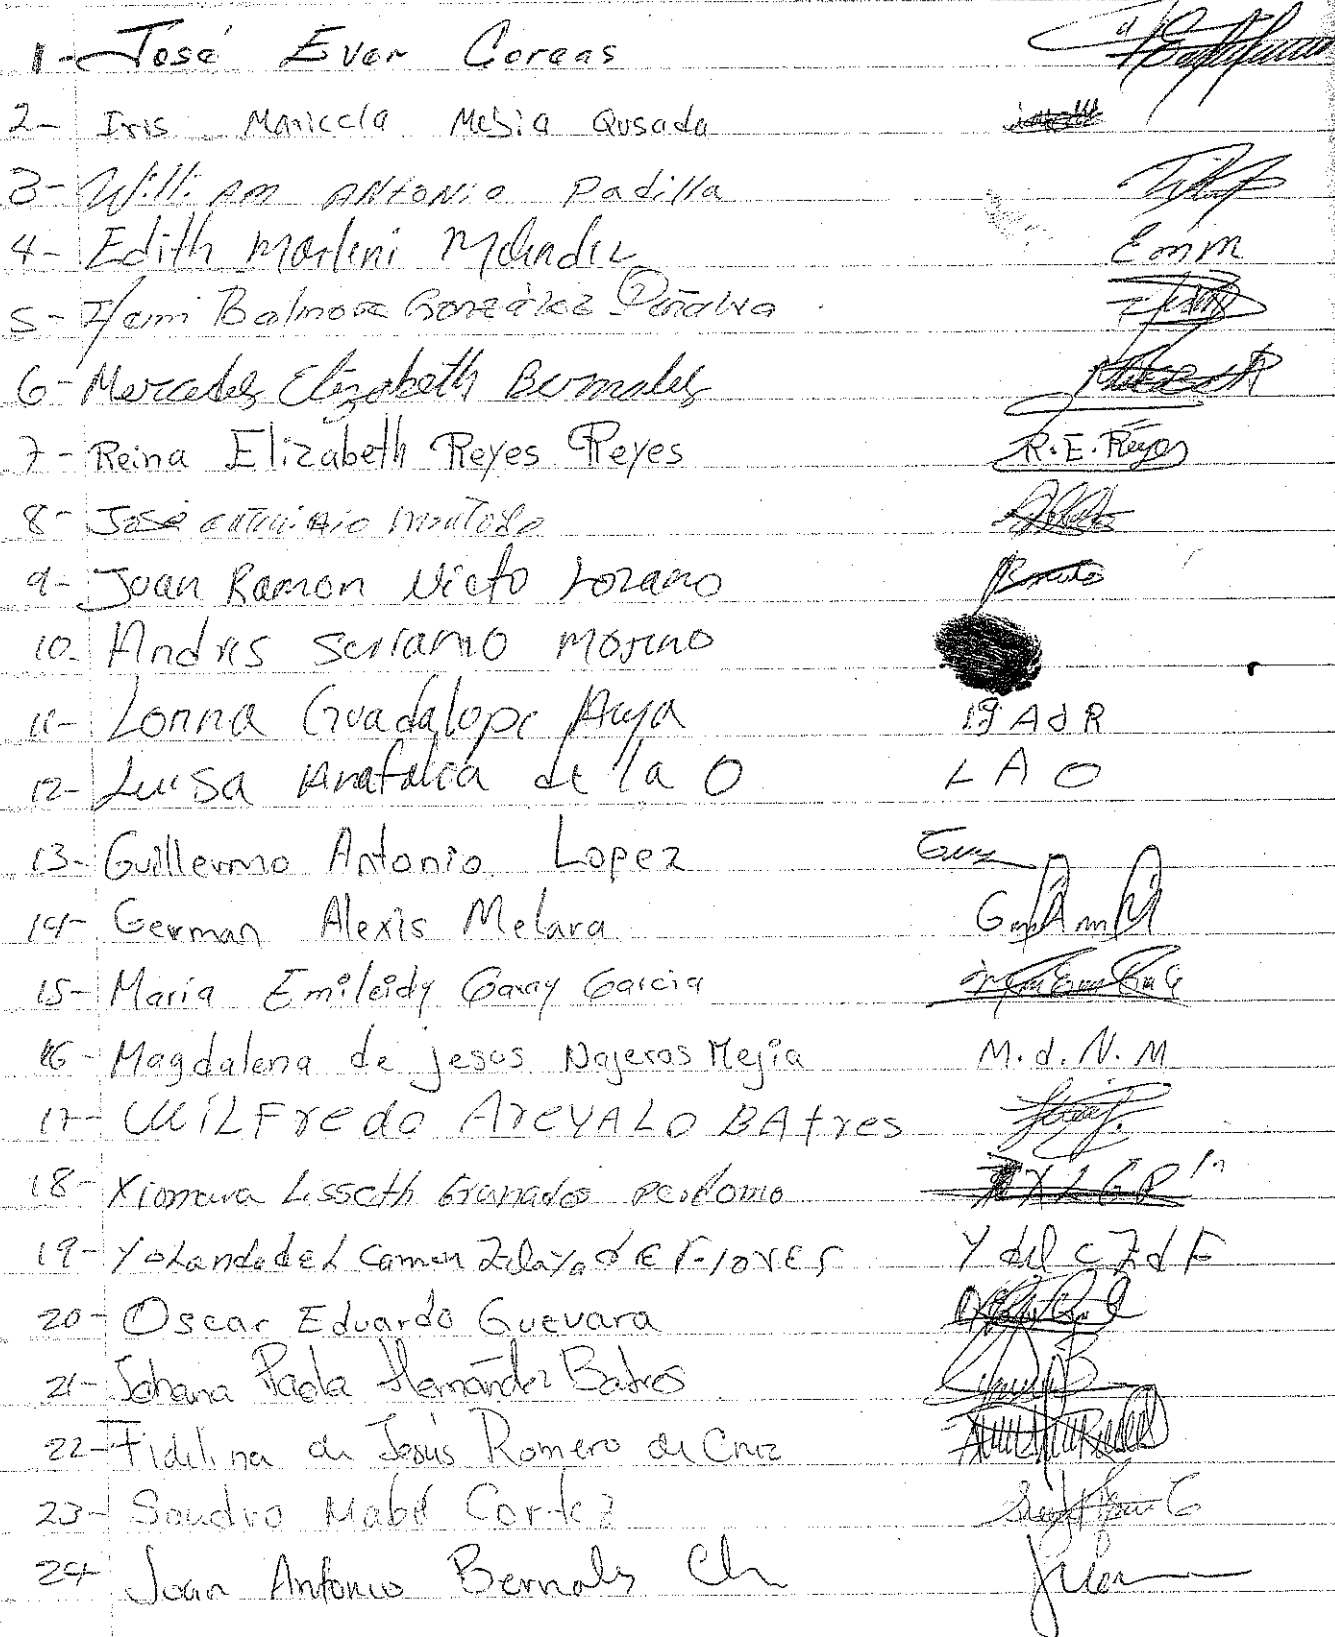 1- José Ever Coreas
2- Iris Maricela Mesia Qusada
3- William Antonio Padilla
4- Edith Marleni Mendez Emm
5- Balmore González Peñalva
6- Mercedes Elizabeth Bermales
7- Reina Elizabeth Reyes Reyes R.E. Reyes
8- José
9- Joan Ramon Nieto Lozano
10- Andres Serrano Moreno
11- Lorina Guadalope Ayya A d R
12- Luisa de la O L A O
13- Guillermo Antonio Lopez
14- German Alexis Melara
15- Maria Emileidy Garay Garcia
16- Magdalena de jesus Najeras Mejia M.d.N.M
17- WiLFredo AreVALO BAtres
18- Xiomara Lisseth Granados perdomo XLGP
19- Yolanda del Carmen Zelaya dE Flores Y del c Z d F
20- Oscar Eduardo Guevara
21- Johana Paola Hernández Batres
22- Fidelina de Jesús Romero de Cruz
23- Sandra Mabel Cortez
24- Joan Antonio Bernales Ch Juan